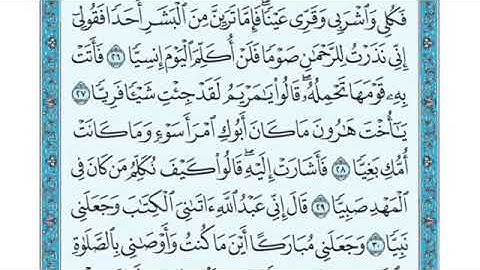 فَكُلِي وَٱشْرَبِي وَقَرِّي عَيْنًاۖ فَإِمَّا تَرَيِنَّ مِنَ ٱلْبَشَرِ أَحَدًا فَقُولِيٓ
إِنِّي نَذَرْتُ لِلرَّحْمَٰنِ صَوْمًا فَلَنْ أُكَلِّمَ ٱلْيَوْمَ إِنسِيًّا ٢٦ فَأَتَتْ
بِهِۦ قَوْمَهَا تَحْمِلُهُۥۖ قَالُوا۟ يَٰمَرْيَمُ لَقَدْ جِئْتِ شَيْـًٔا فَرِيًّا ٢٧
يَٰٓأُخْتَ هَٰرُونَ مَا كَانَ أَبُوكِ ٱمْرَأَ سَوْءٍ وَمَا كَانَتْ
أُمُّكِ بَغِيًّا ٢٨ فَأَشَارَتْ إِلَيْهِۖ قَالُوا۟ كَيْفَ نُكَلِّمُ مَن كَانَ فِي
ٱلْمَهْدِ صَبِيًّا ٢٩ قَالَ إِنِّي عَبْدُ ٱللَّهِ ءَاتَىٰنِيَ ٱلْكِتَٰبَ وَجَعَلَنِي
نَبِيًّا ٣٠ وَجَعَلَنِي مُبَارَكًا أَيْنَ مَا كُنتُ وَأَوْصَٰنِي بِٱلصَّلَوٰةِ